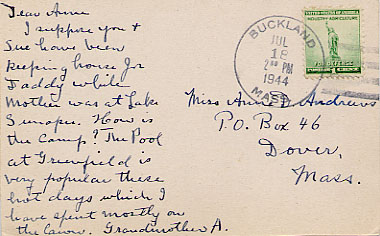 Dear Anne
I suppose you &
Sue have been
keeping house for
Daddy while
Mother was at Lake
Sunapee. How is
the camp? The Pool
at Greenfield is
very popular these
hot days which I
have spent mostly on
the Grandmother A.
BUCKLAND
JUL
18
2 PM
1944
MASS.
UNITED STATES OF AMERICA
INDUSTRY AGRICULTURE
FOR DEFENSE
1¢
Miss Anne D. Andrews
P.O. Box 46
Dover,
Mass.